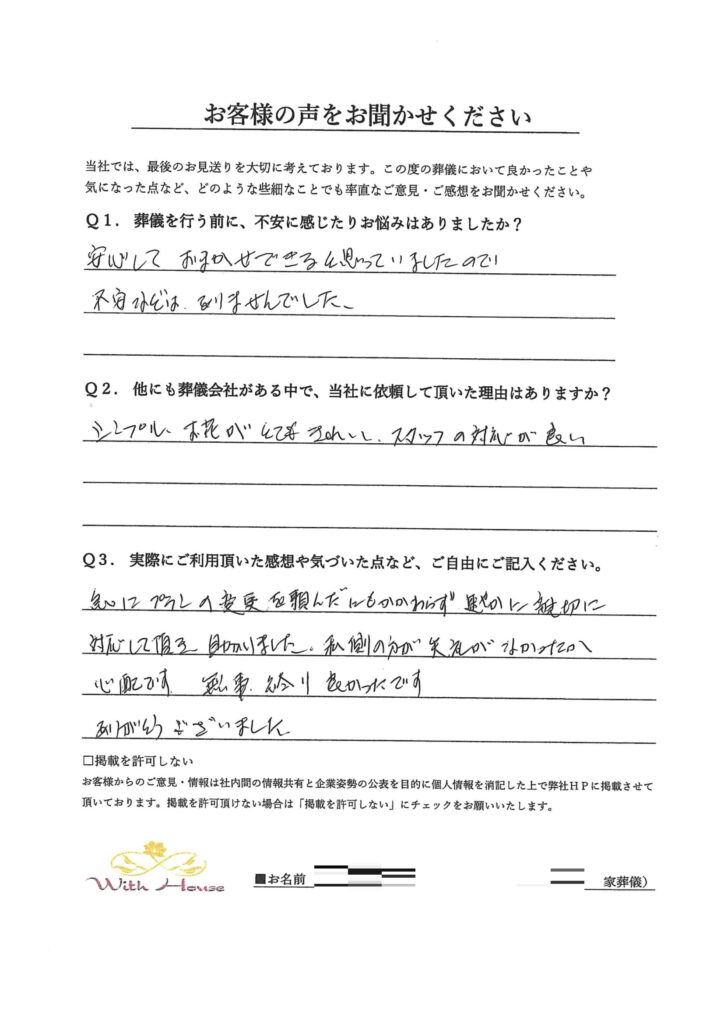 お客様の声をお聞かせください
当社では、最後のお見送りを大切に考えております。この度の葬儀において良かったことや
気になった点など、どのような些細なことでも率直なご意見・ご感想をお聞かせください。
Q1. 葬儀を行う前に、不安に感じたりお悩みはありましたか？
安心して おまかせできると思っていましたので
不安などは、ありませんでした、
Q2. 他にも葬儀会社がある中で、当社に依頼して頂いた理由はありますか？
シンプル、お花がとてもきれいし、スタッフの対応が良い
Q3. 実際にご利用頂いた感想や気づいた点など、ご自由にご記入ください。
急にプランの変更を頼んだにもかかわらず 親切に
対応して頂き 助かりました。私側の方が失礼がなかったか
心配です 無事 終り 良かったです
ありがとうございました
□掲載を許可しない
お客様からのご意見・情報は社内間の情報共有と企業姿勢の公表を目的に個人情報を消記した上で弊社HPに掲載させて
頂いております。掲載を許可頂けない場合は「掲載を許可しない」にチェックをお願いいたします。
With House
■お名前
家葬儀）